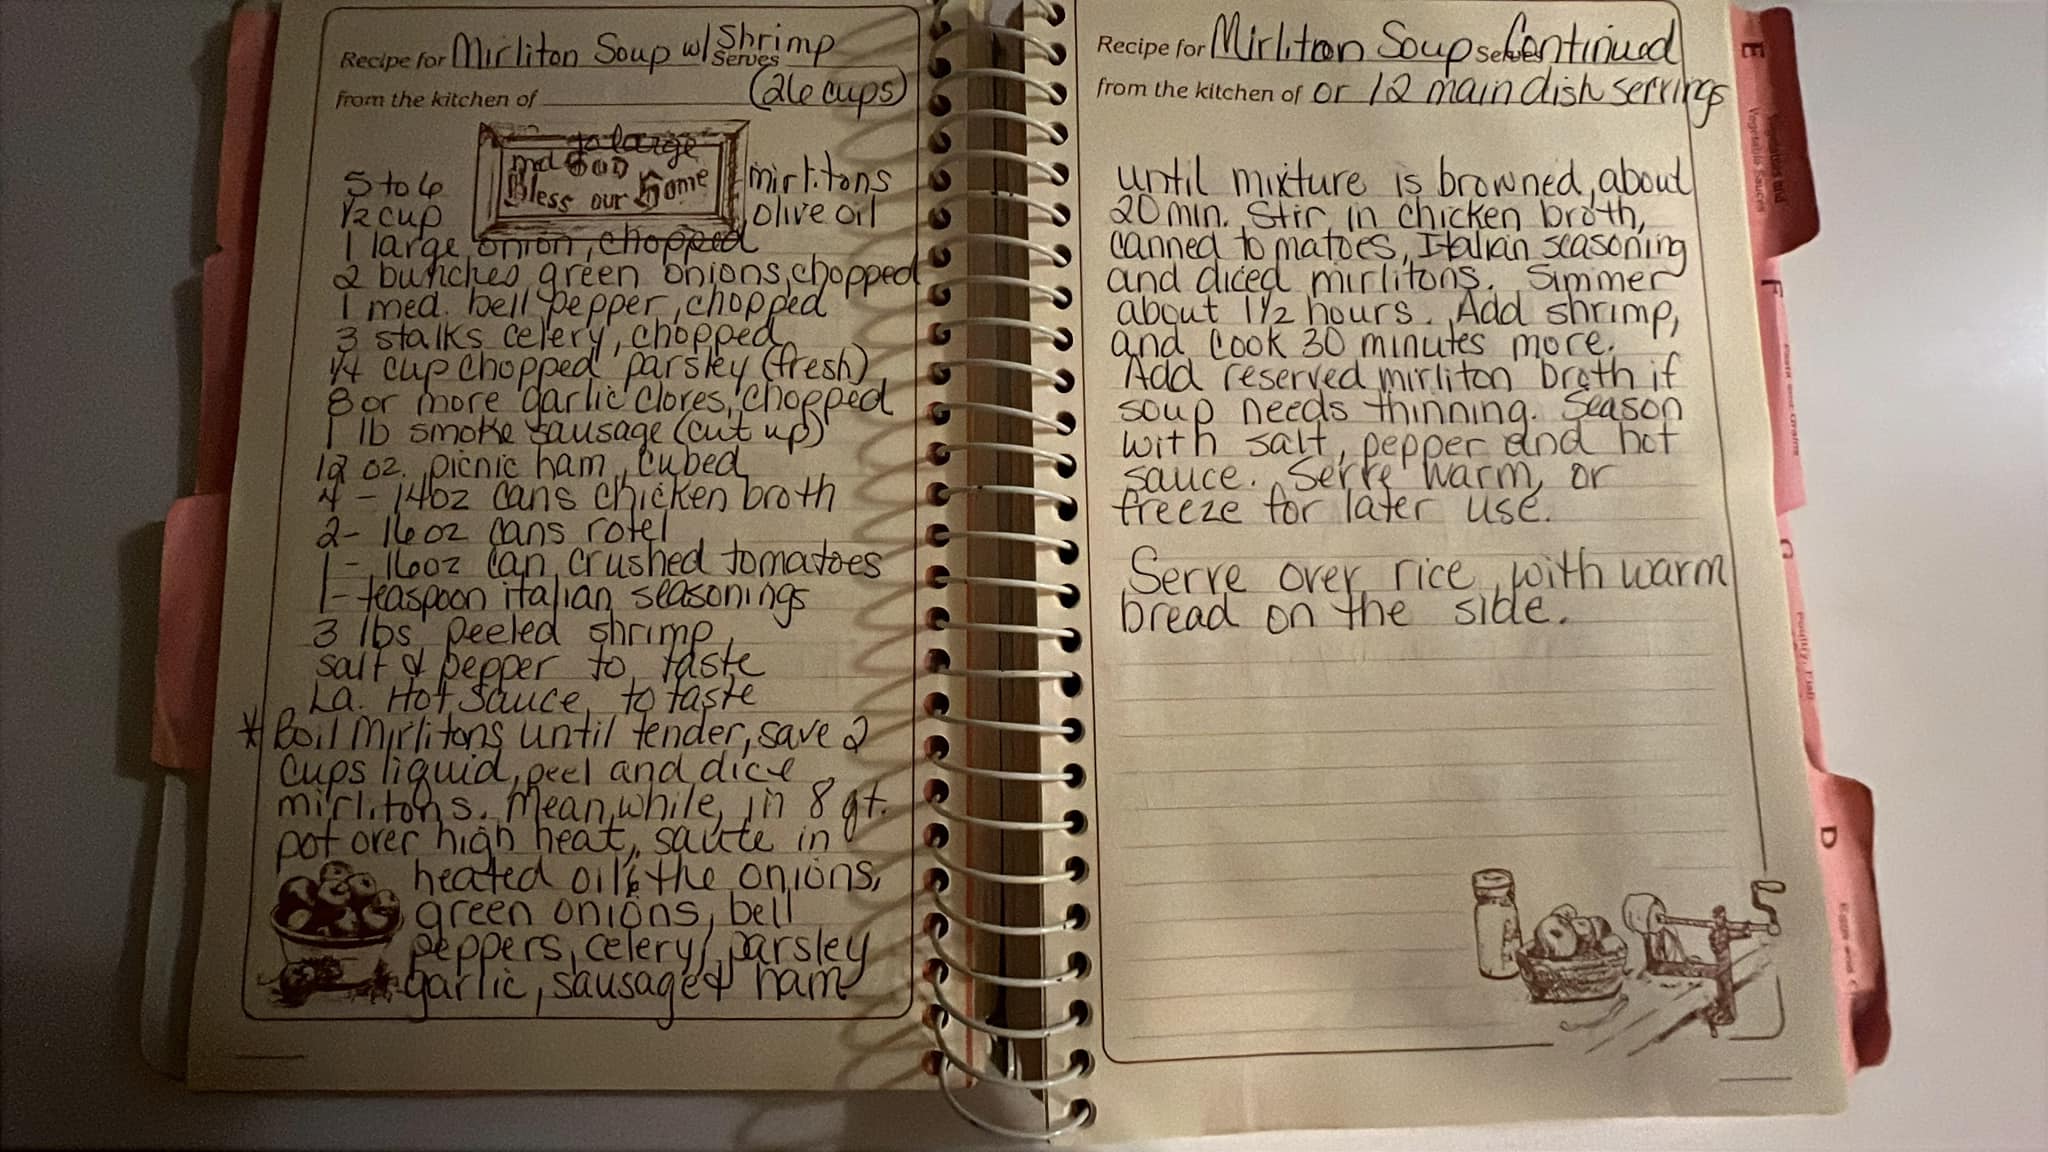 Recipe for Mirliton Soup w/ Shrimp
Serves
from the kitchen of (26 cups)
to large
med God
Bless our Home
5 to 6 mirlitons
1/2 cup olive oil
1 large onion, chopped
2 bunches green onions, chopped
1 med. bell pepper, chopped
3 stalks celery, chopped
1/4 cup chopped parsley (fresh)
8 or more garlic cloves, chopped
1 lb smoke sausage (cut up)
12 oz. picnic ham, cubed
4 - 14oz cans chicken broth
2- 16 oz cans rotel
1 - 16oz can crushed tomatoes
1- teaspoon italian seasonings
3 lbs peeled shrimp
salt & pepper to taste
La. Hot Sauce to taste
* Boil Mirlitons until tender, save 2
cups liquid, peel and dice
mirlitons. Meanwhile, in 8 qt.
pot over high heat, saute in
heated oil, the onions,
green onions, bell
peppers, celery, parsley
garlic, sausage & ham
Recipe for Mirliton Soup Serves Continued
from the kitchen of or 12 main dish servings
until mixture is browned, about
20 min. Stir in chicken broth,
canned tomatoes, Italian seasoning
and diced mirlitons. Simmer
about 1 1/2 hours. Add shrimp,
and cook 30 minutes more.
Add reserved mirliton broth if
soup needs thinning. Season
with salt, pepper and hot
sauce. Serve warm, or
freeze for later use.
Serve over rice, with warm
bread on the side.
E
Vegetables and
Vegetable Sauces
F
G
D